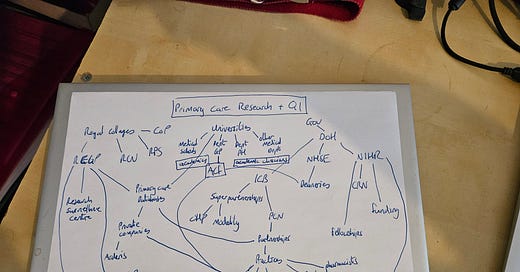 Primary Care Research + QI
Royal Colleges
CoP
RCN
RPS
Research Surveillance Centre
Primary care databases
Private companies
Universities
Medical Schools
Dept GP
Dept PH
other Medical Depts
ACF
GOV
DOH
NHSE
NIHR
Deaneries
CRN
Funding
Fellowships
ICB
Superpartnerships
Modality
PCN
Partnerships
Practices
pharmacists